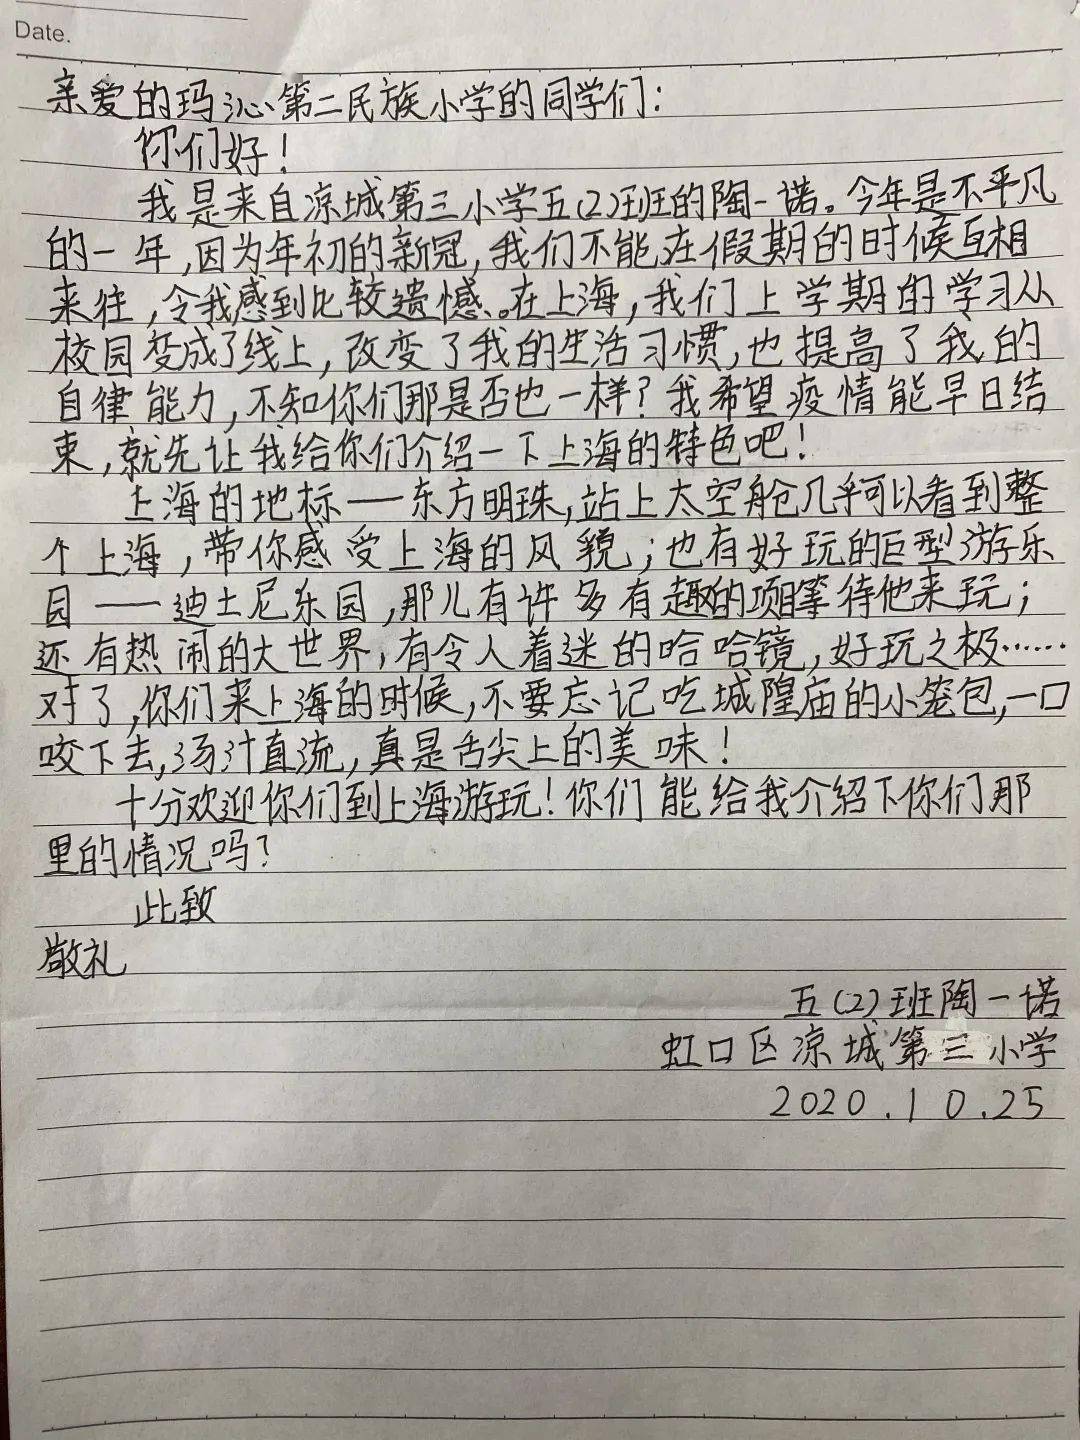 Date.
亲爱的玛沁第二民族小学的同学们：
你们好！
我是来自凉城第三小学五(2)班的陶一诺。今年是不平凡
的一年，因为年初的新冠，我们不能在假期的时候互相
来往，令我感到比较遗憾。在上海，我们上学期的学习从
校园变成了线上，改变了我的生活习惯，也提高了我的
自律能力，不知你们那是否也一样？我希望疫情能早日结
束，就先让我给你们介绍一下上海的特色吧！
上海的地标——东方明珠，站上太空舱几乎可以看到整
个上海，带你感受上海的风貌；也有好玩的巨型游乐
园——迪士尼乐园，那儿有许多有趣的项目等待他来玩；
还有热闹的大世界，有令人着迷的哈哈镜，好玩之极……
对了，你们来上海的时候，不要忘记吃城隍庙的小笼包，一口
咬下去，汤汁直流，真是舌尖上的美味！
十分欢迎你们到上海游玩！你们能给我介绍下你们那
里的情况吗？
此致
敬礼
五(2)班陶一诺
虹口区凉城第三小学
2020.10.25